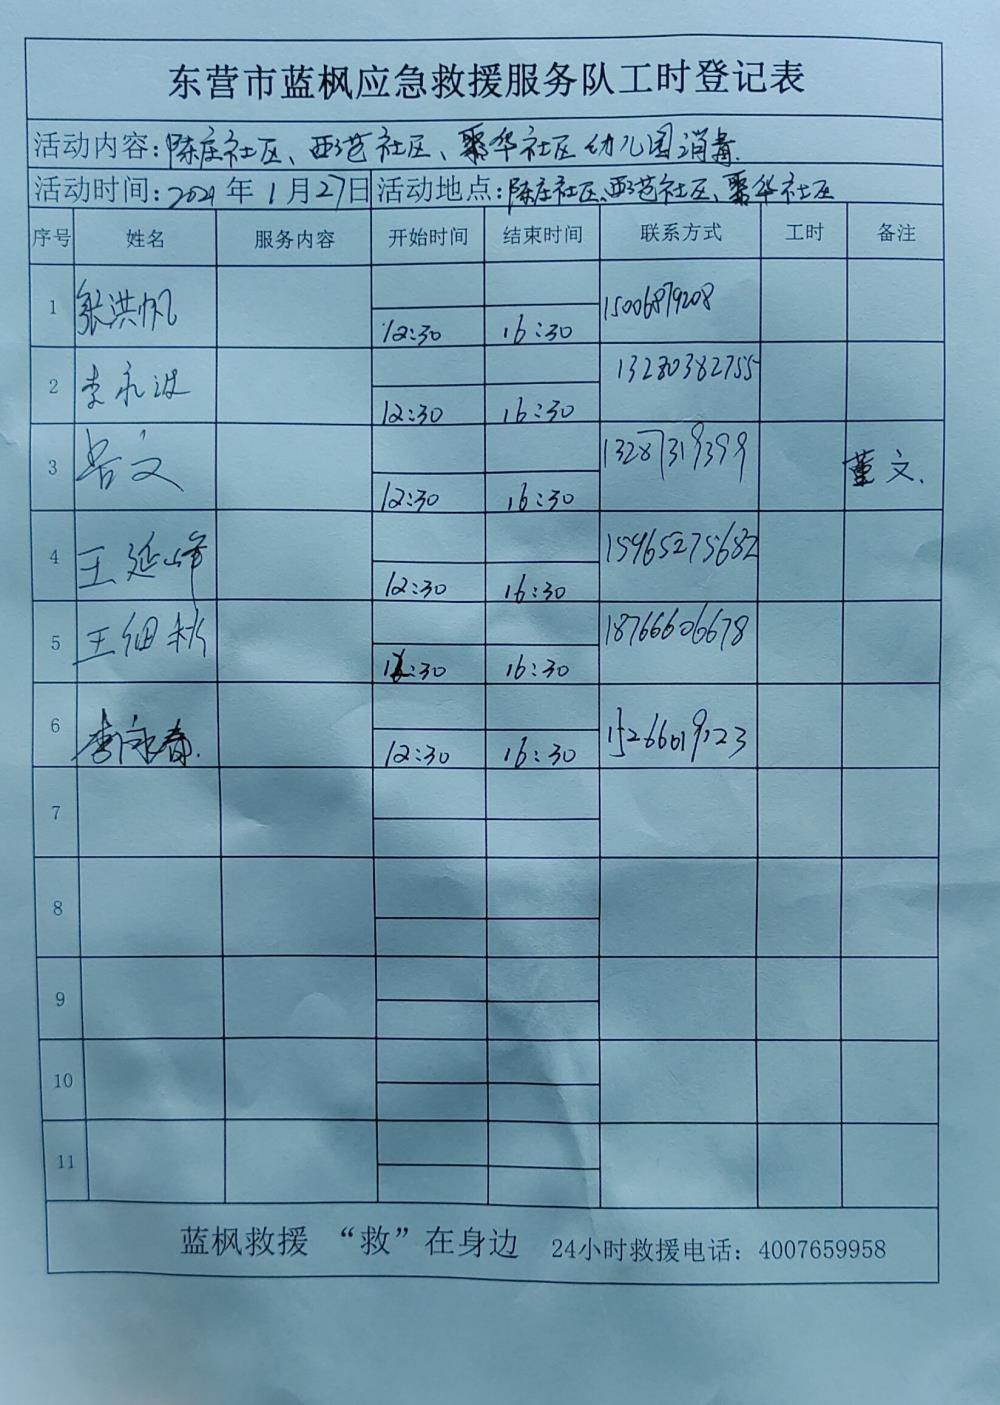 东营市蓝枫应急救援服务队工时登记表
活动内容:陈庄社区、西范社区、聚华社区幼儿园消毒.
活动时间:2021年1月27日 活动地点:陈庄社区、西范社区、聚华社区
序号 姓名 服务内容 开始时间 结束时间 联系方式 工时 备注
1 张洪帆 12:30 16:30 15006879208
2 李永波 12:30 16:30 13280382755
3 文 12:30 16:30 13287319399 董文.
4 王延峰 12:30 16:30 15965275682
5 王细秋 12:30 16:30 18766606678
6 李永春. 12:30 16:30 15266019123
7
8
9
10
11
蓝枫救援 “救”在身边 24小时救援电话：4007659958